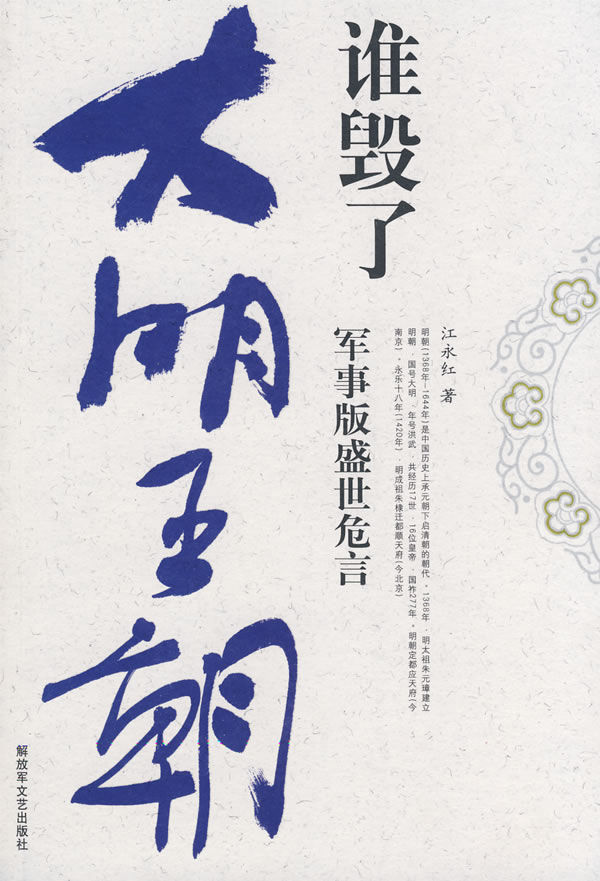 谁毁了
大明王朝
军事版盛世危言
江永红 著
明朝(1368年—1644年)是中国历史上承元朝下启清朝的朝代。1368年，明太祖朱元璋建立
明�，国号大明，年号洪武，共经历17世，16位皇帝，国祚277年。明朝定都应天府(今
南京)，永乐十八年(1420年)，明成祖朱棣迁都顺天府(今北京)
解放军文艺出版社